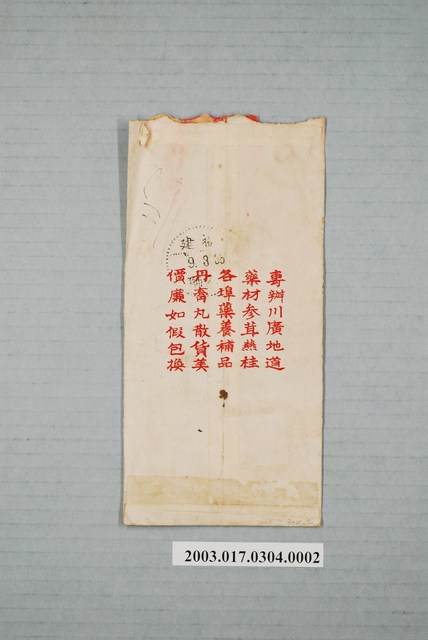 專辦川廣地道
藥材参茸燕桂
各埠藥養補品
丹膏丸散貨美
價廉如假包換
福建
9.3.
2003.017.0304.0002